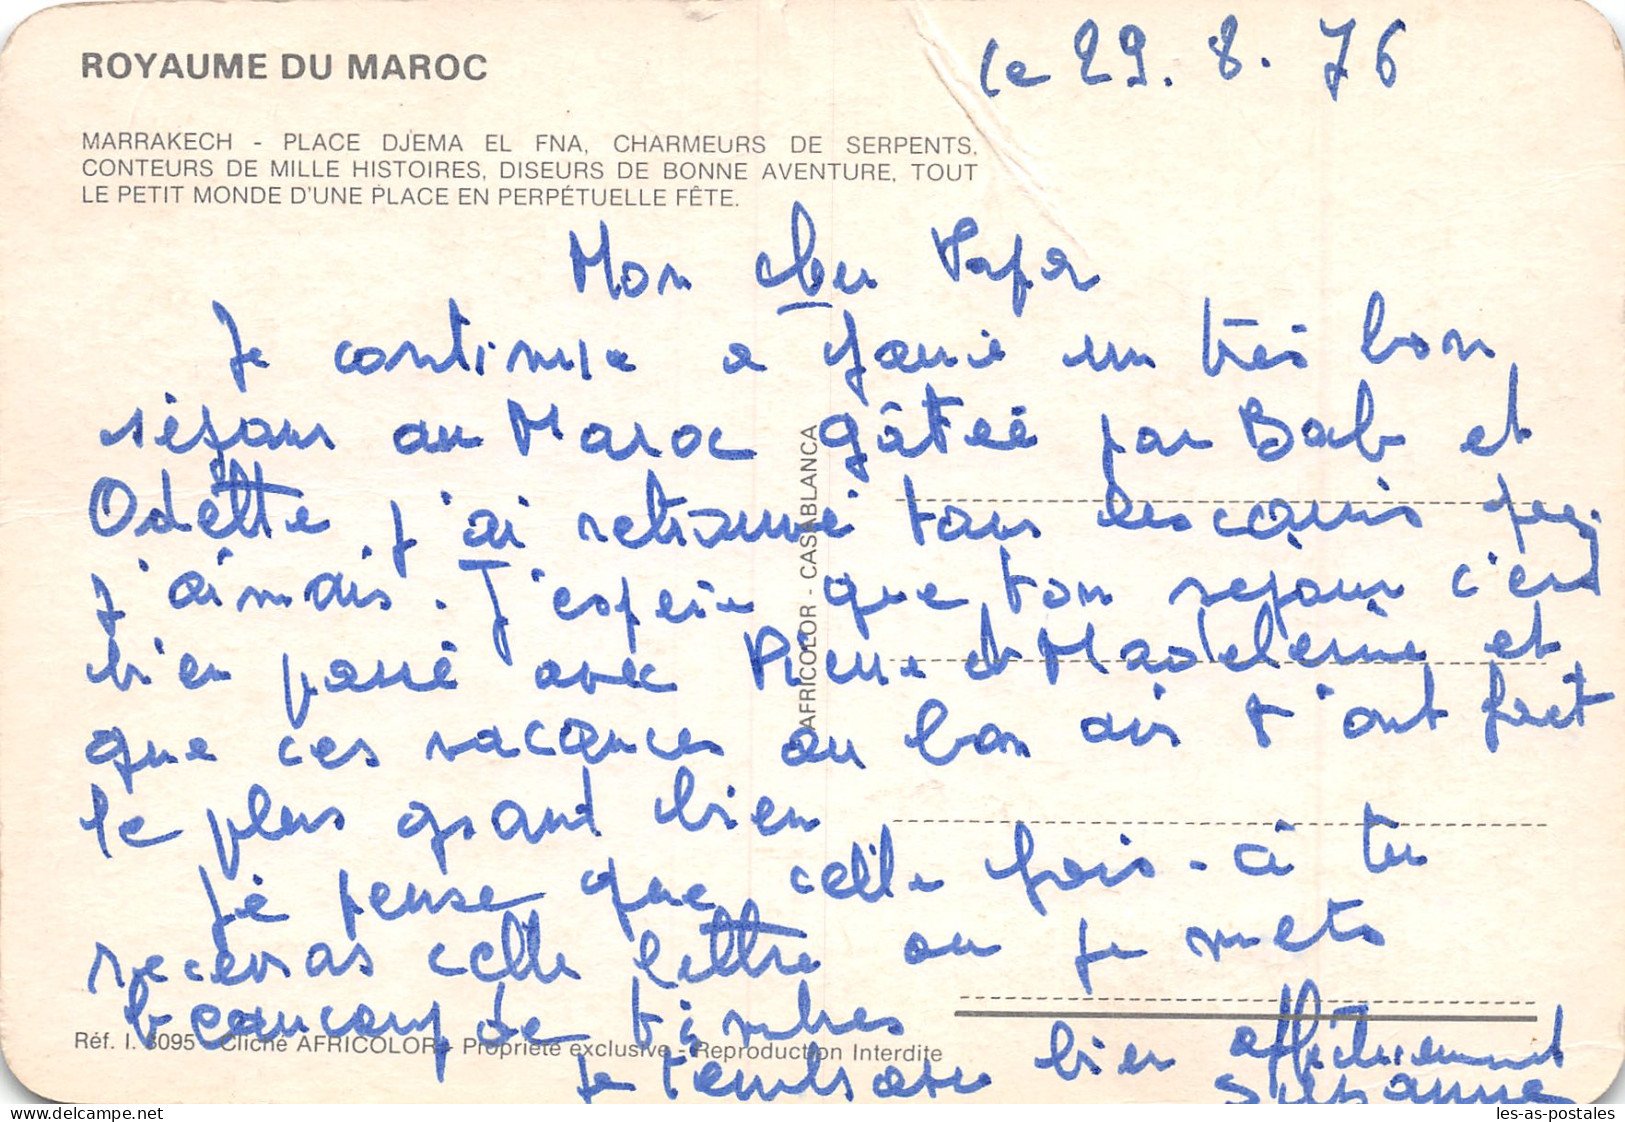 le 29.8.76
ROYAUME DU MAROC
MARRAKECH - PLACE DJEMA EL FNA, CHARMEURS DE SERPENTS,
CONTEURS DE MILLE HISTOIRES, DISEURS DE BONNE AVENTURE, TOUT
LE PETIT MONDE D'UNE PLACE EN PERPÉTUELLE FÊTE.
Mon cher Papa
Je continue a un très bon
séjour au Maroc gâtée par Bab et
Odette j'ai retrouvé tous les coins que
j'aimais. J'espère que ton sejour c'est
bien passé avec Pierre et Madeleine et
que ces vacances au bon air t'ont fait
le plus grand bien
Je pense que cette fois-ci tu
recevras cette lettre ou je mets
beaucoup de timbres
Je t'embrasse bien affectueusement
Suzanne
AFRICOLOR - CASABLANCA
Réf. I. 8095 - Cliché AFRICOLOR - Propriété exclusive - Reproduction Interdite
les-as-postales